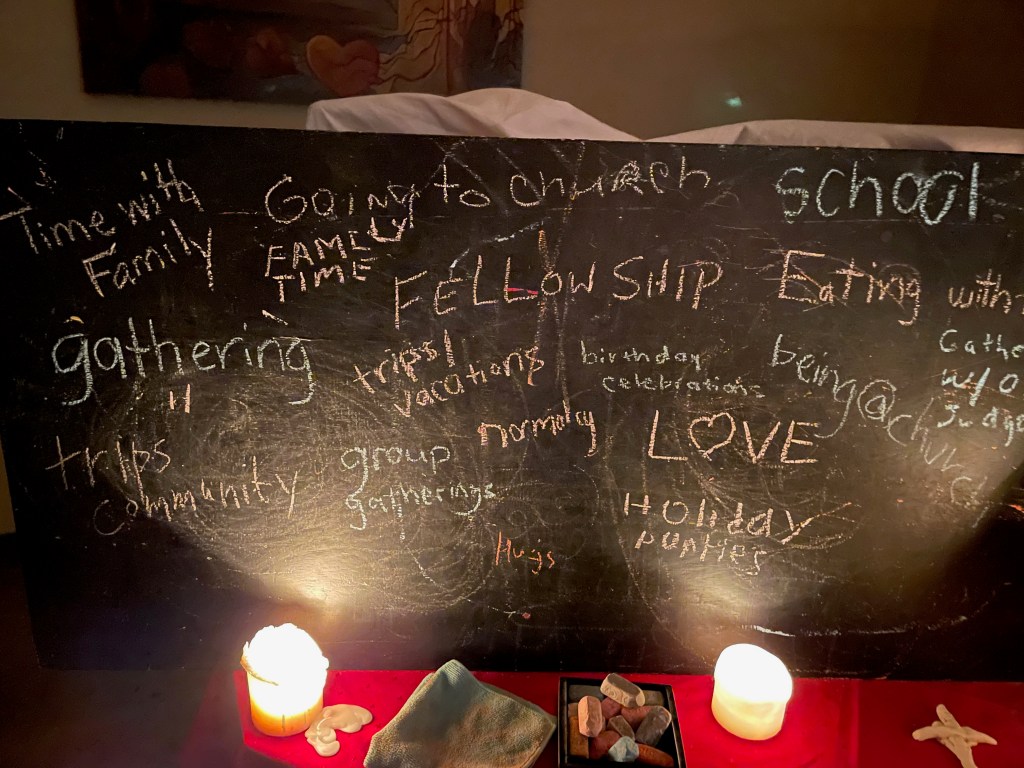 Time with
Family
Going to church
FAMELY
TIME
school
FELLOWSHIP
Eating with
gathering
"
trips!
vacations
birthday
celebrations
being@church
Gathe
w/o
Judge
trips
community
group
gatherings
normalcy
LOVE
Holiday
parties
Hugs